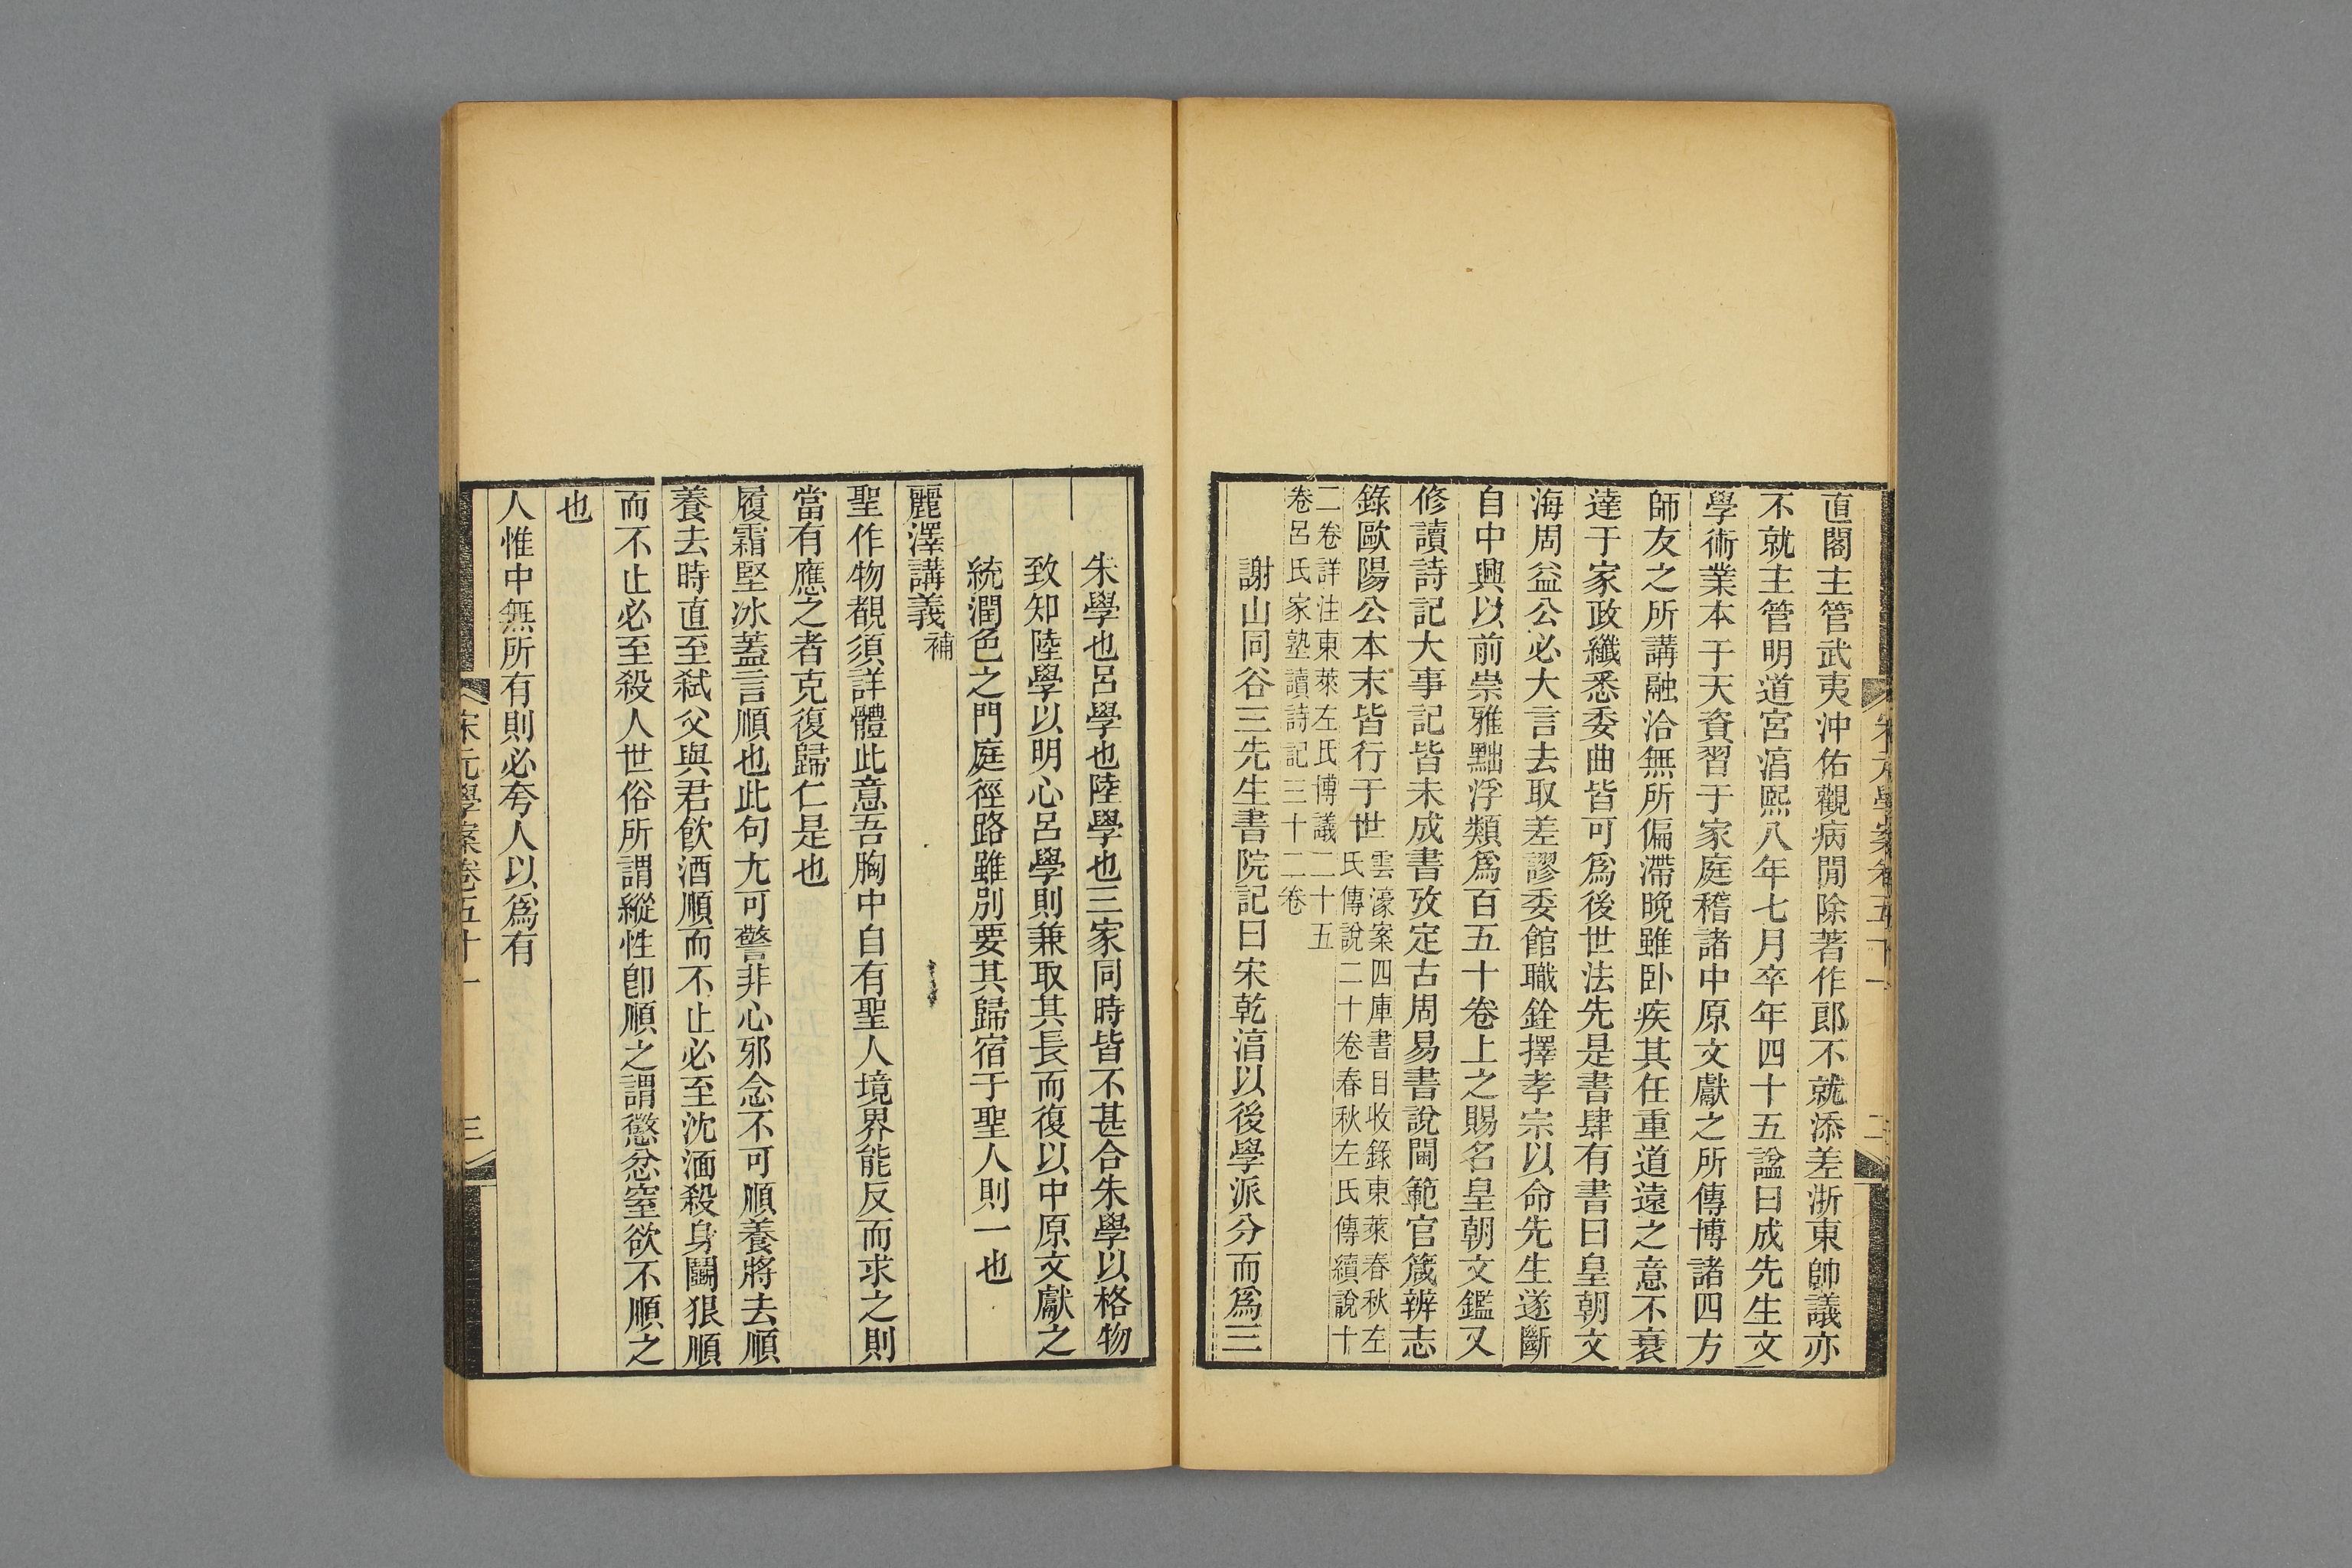 直閣主管武夷沖佑觀病閒除著作郎不就添差浙東帥議亦
不就主管明道宮湻熙八年七月卒年四十五諡曰成先生文
學術業本于天資習于家庭稽諸中原文獻之所傳博諸四方
師友之所講融洽無所偏滯晚雖卧疾其任重道遠之意不衰
達于家政纖悉委曲皆可爲後世法先是書肆有書曰皇朝文
海周益公必大言去取差謬委館職銓擇孝宗以命先生遂斷
自中興以前崇雅黜浮類爲百五十卷上之賜名皇朝文鑑又
修讀詩記大事記皆未成書攷定古周易書說閫範官箴辨志
錄歐陽公本末皆行于世
雲濠案四庫書目收錄東萊春秋左
氏傳說二十卷春秋左氏傳續說十
二卷詳注東萊左氏博議二十五
卷呂氏家塾讀詩記三十二卷
謝山同谷三先生書院記曰宋乾湻以後學派分而爲三
朱學也呂學也陸學也三家同時皆不甚合朱學以格物
致知陸學以明心呂學則兼取其長而復以中原文獻之
統潤色之門庭徑路雖別要其歸宿于聖人則一也
麗澤講義補
聖作物覩須詳體此意吾胸中自有聖人境界能反而求之則
當有應之者克復歸仁是也
履霜堅冰蓋言順也此句尤可警非心邪念不可順養將去順
養去時直至弑父與君飮酒順而不止必至沈湎殺身鬭狠順
而不止必至殺人世俗所謂縱性卽順之謂懲忿窒欲不順之
也
人惟中無所有則必夸人以爲有
宋元學案卷五十一
三